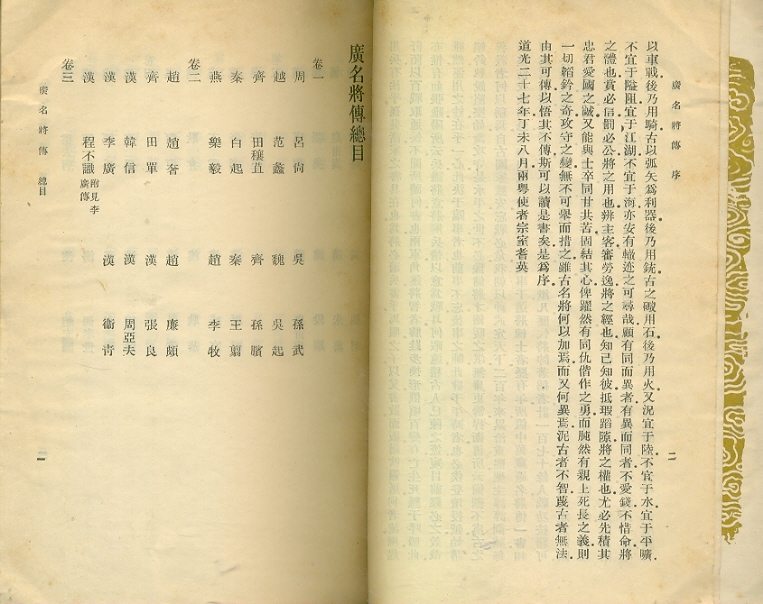 廣名將傳 序
以車戰後乃用騎古以弧矢爲利器後乃用銃古之礮用石後乃用火又況宜于陸不宜于水宜于平曠
不宜于隘阻宜于江湖不宜于海亦安有轍迹之可尋哉顧有同而異者有異而同者不愛錢不惜命將
之體也賞必信罰必公將之用也辨主客審勞逸將之經也知己知彼抵瑕蹈隙將之權也尤必先積其
忠君愛國之誠又能與士卒同甘共苦固結其心俾躍然有同仇偕作之勇而肫然有親上死長之義則
一切韜鈐之奇攻守之變無不可舉而措之雖古名將何以加焉而又何異焉泥古者不智蔑古者無法
由其可傳以悟其不傳斯可以讀是書矣是爲序
道光二十七年丁未八月兩粵使者宗室耆英
二
廣名將傳總目
卷一
周 呂尚 吳 孫武
越 范蠡 魏 吳起
齊 田穰苴 齊 孫臏
秦 白起 秦 王翦
燕 樂毅 趙 李牧
卷二
趙 趙奢 趙 廉頗
齊 田單 漢 張良
漢 韓信 漢 周亞夫
漢 李廣 漢 衞青
漢 程不識 附見李廣傳
卷三
廣名將傳 總目
一